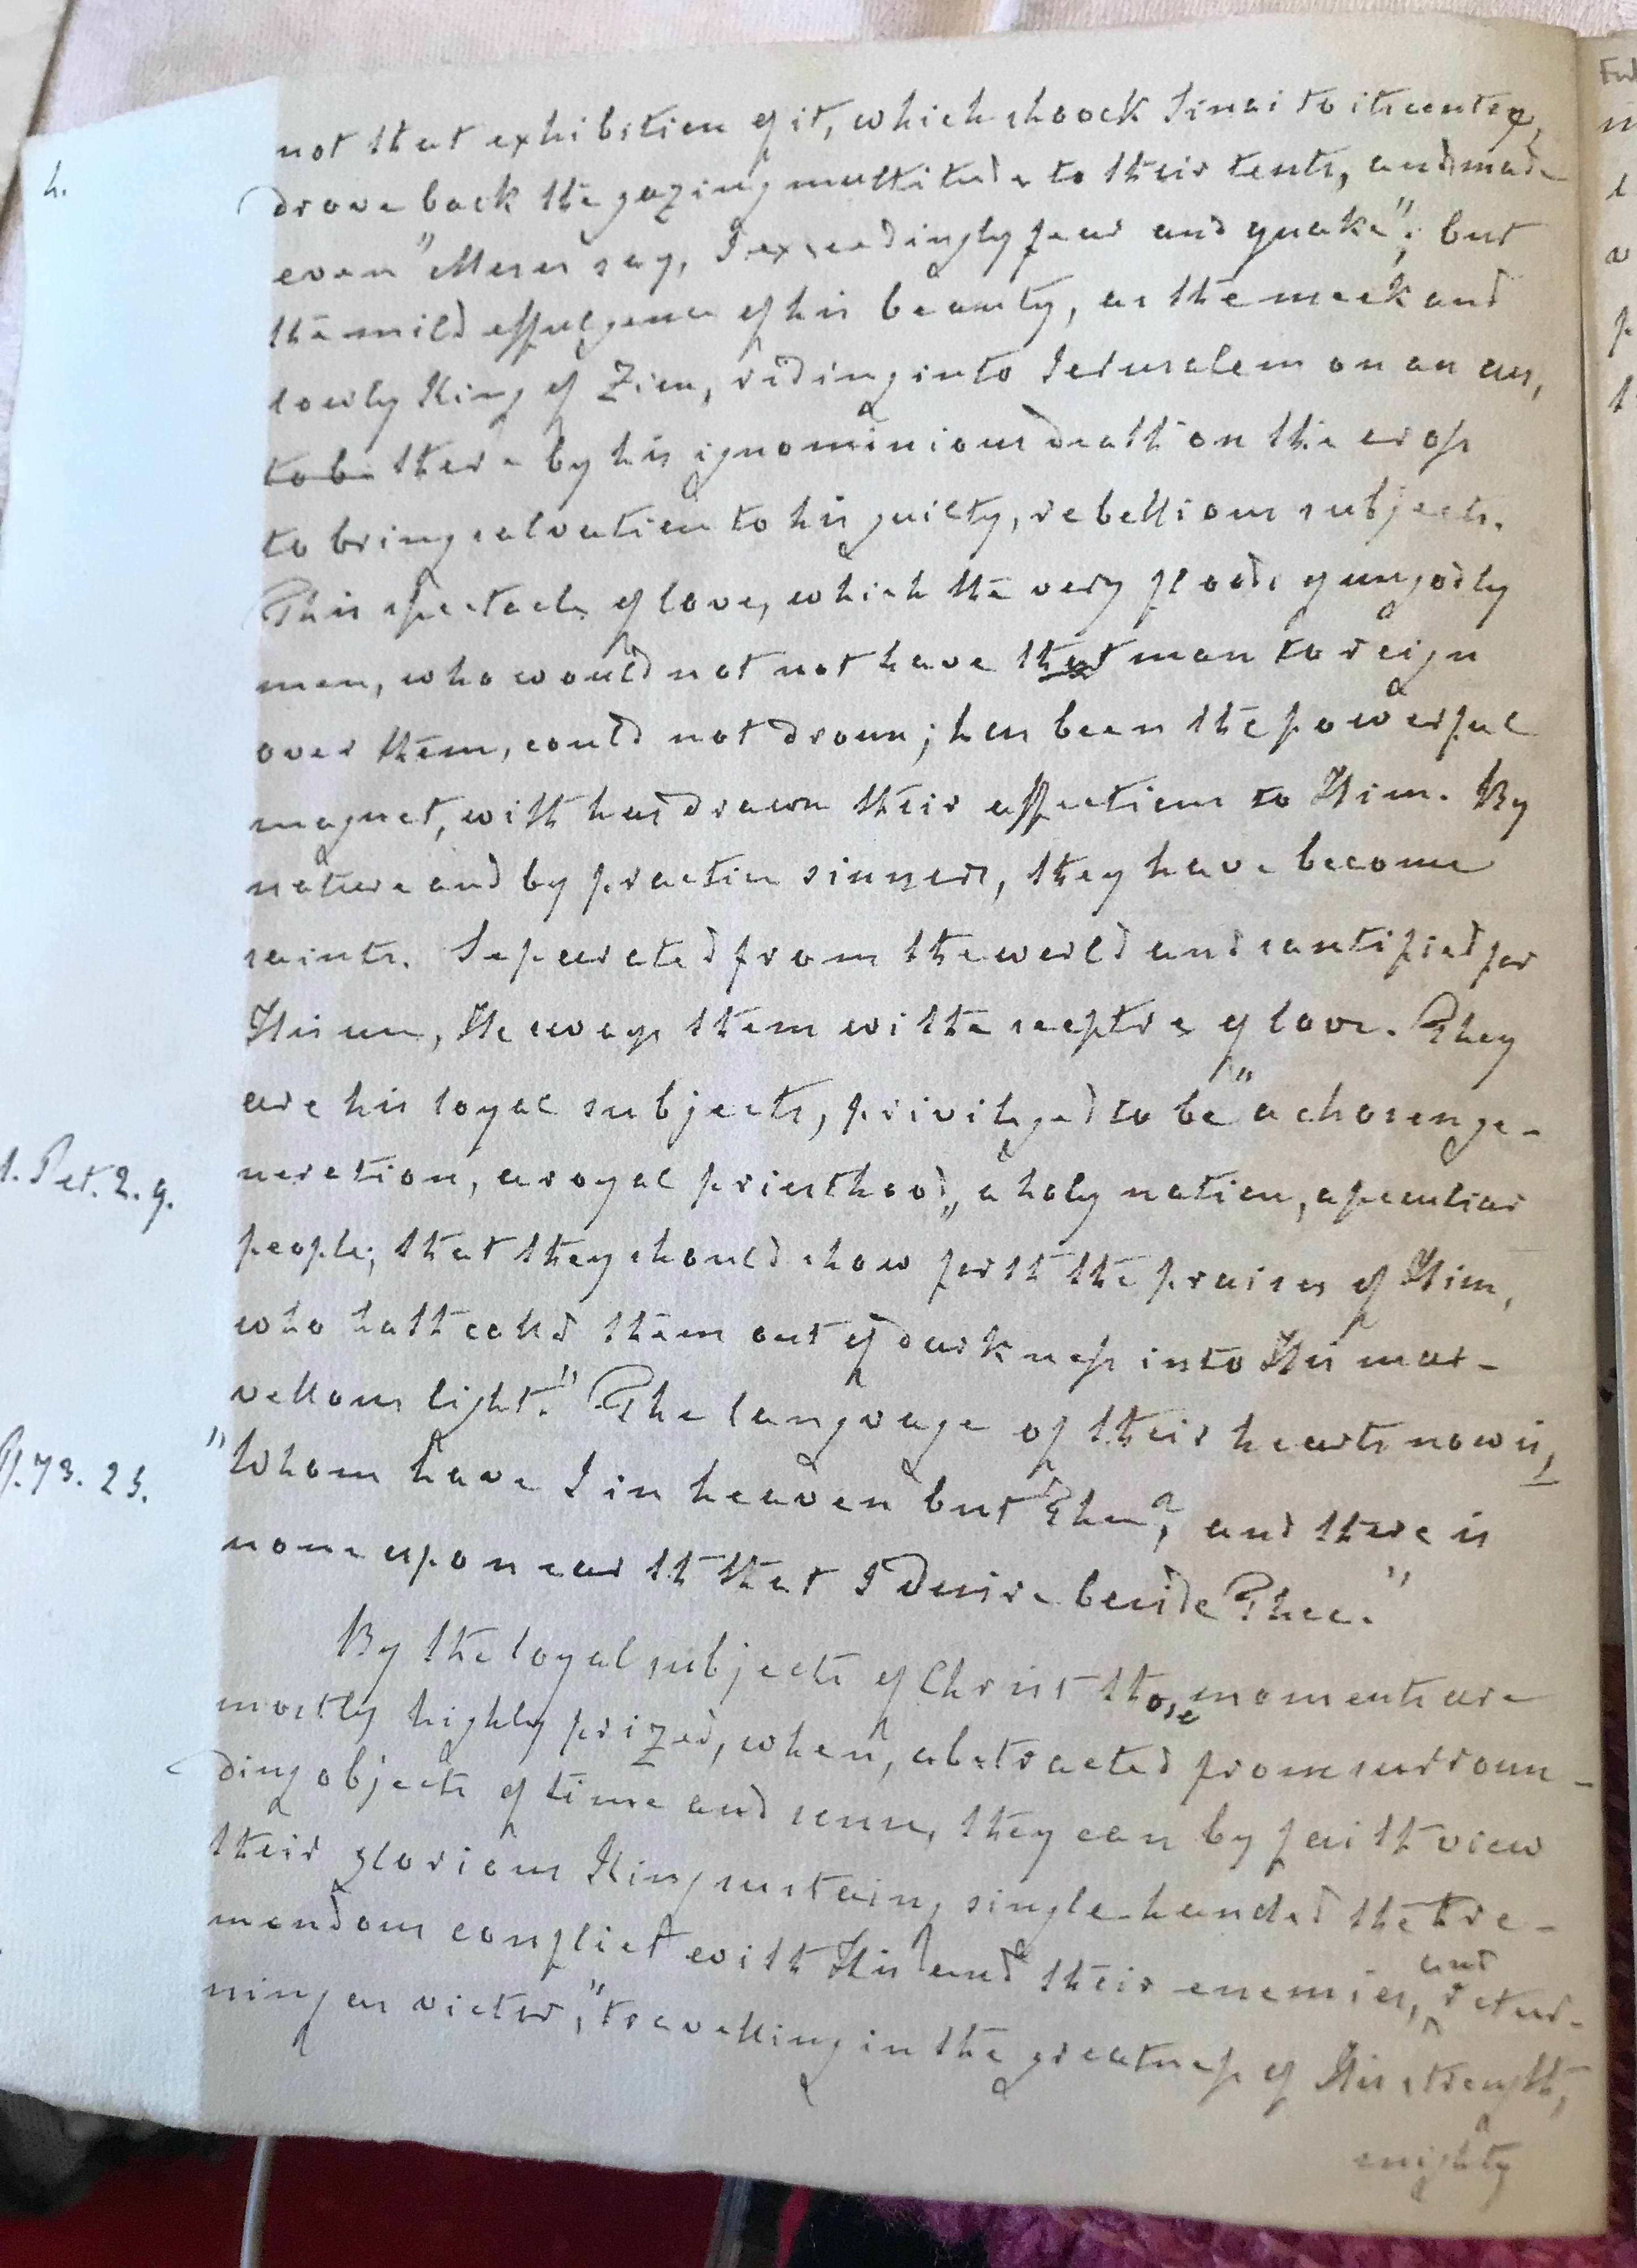 h.
not that exhibition of it, which shoock Sinai to its centre,
drove back the gazing multitude to their tents, and made
even "Moses say, I exceedingly fear and quake"; but
the mild effulgence of his beauty, as the meek and
lowly King of Zion, riding into Jerusalem on an ass,
to be there by his ignominious death on the cross
to bring salvation to his guilty, rebellious subjects.
This spectacle of love, which the very floods of ungodly
men, who would not not have that man to reign
over them, could not droun; has been the powerful
magnet, with has drawn their affections to Him. By
nature and by practice sinners, they have become
saints. Separated from the world and santified for
His use, He sways them with a sceptre of love. They
are his loyal subjects, privileged to be "a chosen ge-
1. Pet. 2. 9.
neration, a royal priesthood, a holy nation, a peculiar
people; that they should show forth the praises of Him,
who hath called them out of darkness into His mar-
vellous light." The language of their hearts now is,
Ps. 73. 25.
"Whom have I in heaven but Thee? and there is
none upon earth that I desire beside Thee."
By the loyal subjects of Christ those moments are
mostly highly prized, when, abstracted from surroun-
ding objects of time and sense, they can by faith view
their glorious King sustain, single-handed the tre-
mendous conflict with His and their enemies, and retur-
ning as victor, "travelling in the greatness of His strength,
mighty